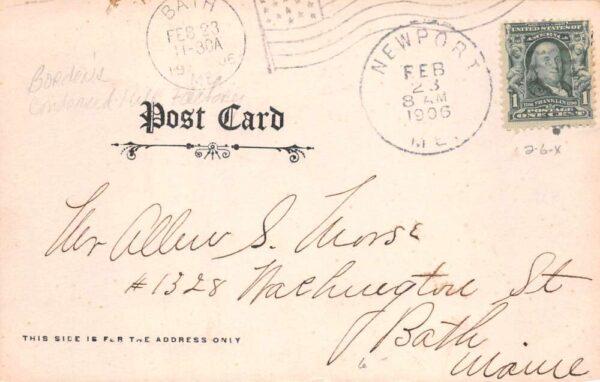 BATH
FEB 23
11-30A
ME.
NEWPORT
FEB
23
8 AM
1906
ME.
UNITED STATES OF AMERICA
1
FRANKLIN
1
POSTAGE ONE CENT
2-6-X
Borden's
Condensed Milk Factory
Post Card
Mr Allen S. Morse
#1328 Washington St
Bath
Maine
THIS SIDE IS FOR THE ADDRESS ONLY